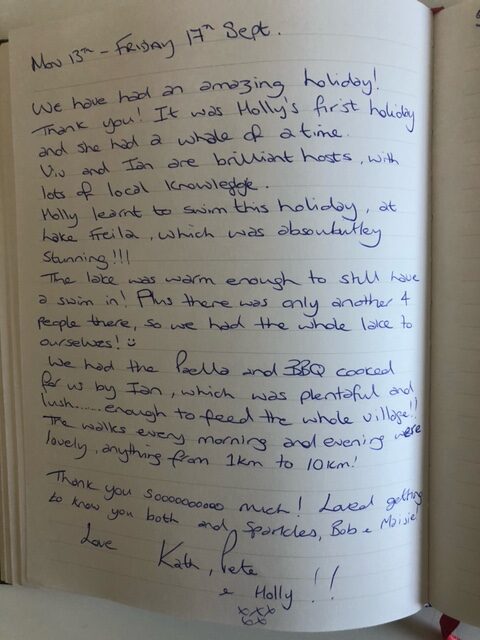 Mon 13th - FRIDAY 17th Sept.
We have had an amazing holiday!
Thank you! It was Holly's first holiday
and she had a whale of a time.
Viv and Ian are brilliant hosts, with
lots of local knowledge.
Holly learnt to swim this holiday, at
Lake Freila, which was absoulutley
stunning!!!
The lake was warm enough to still have
a swim in! Plus there was only another 4
people there, so we had the whole lake to
ourselves! ☺
We had the Paella and BBQ cooked
for us by Ian, which was plentaful and
lush......enough to feed the whole village!!
The walks every morning and evening were
lovely, anything from 1km to 10km!
Thank you soooooooooo much! Loved getting
to know you both and Sparkles, Bob & Maisie!
Love Kath, Pete
& Holly !!
xxx
xx